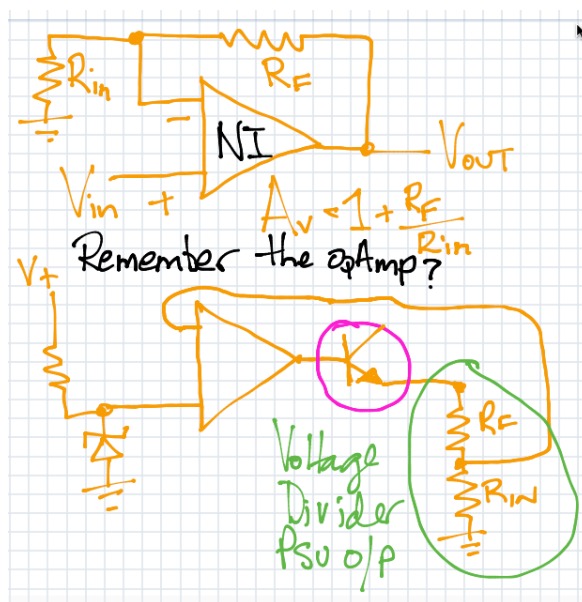 Rin
RF
−
NI
VOUT
Vin +
Av = 1 + RF
Rin
Remember the opAmp?
V+
RF
RIN
Voltage
Divider
PSU o/p